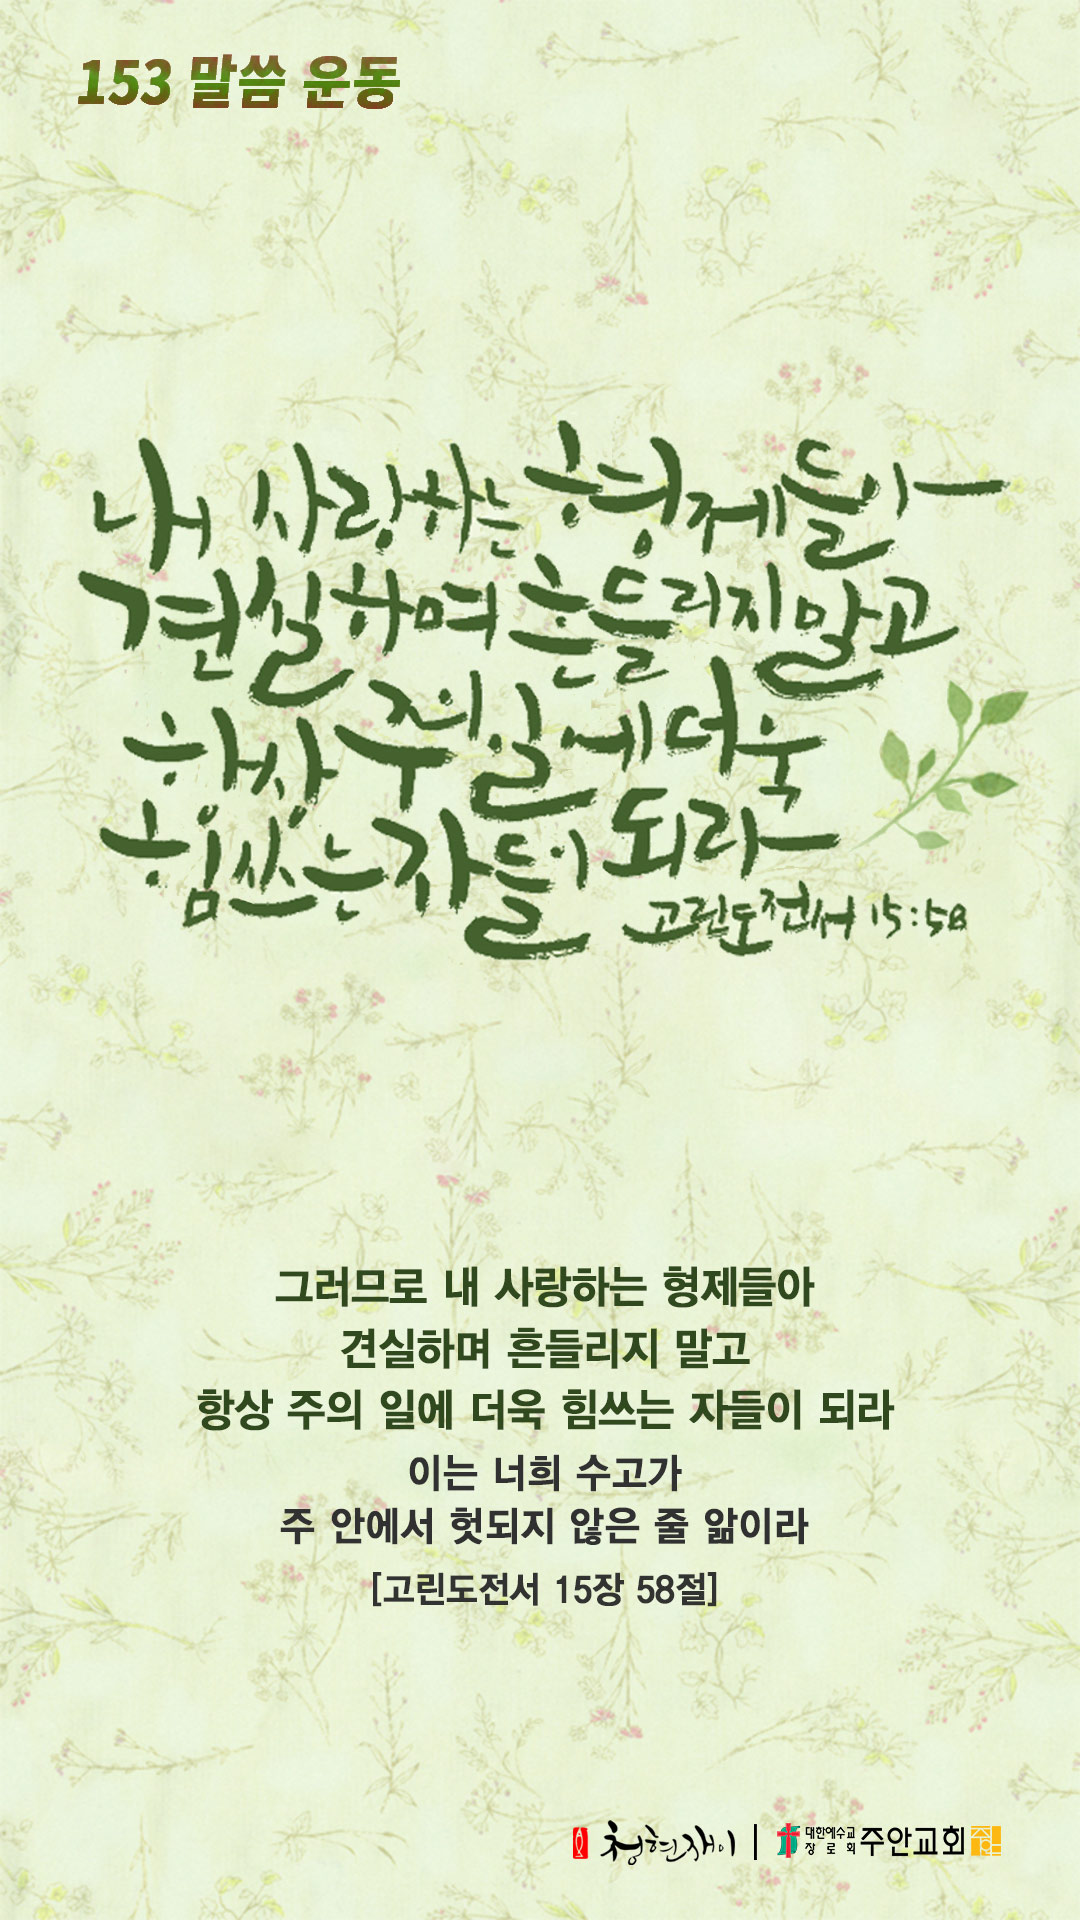 153 말씀 운동
내 사랑하는 형제들아
견실하며 흔들리지말고
항상 주의 일에 더욱
힘쓰는 자들이 되라
고린도전서 15:58
그러므로 내 사랑하는 형제들아
견실하며 흔들리지 말고
항상 주의 일에 더욱 힘쓰는 자들이 되라
이는 너희 수고가
주 안에서 헛되지 않은 줄 앎이라
[고린도전서 15장 58절]
청현재이 | 대한예수교장로회 주안교회